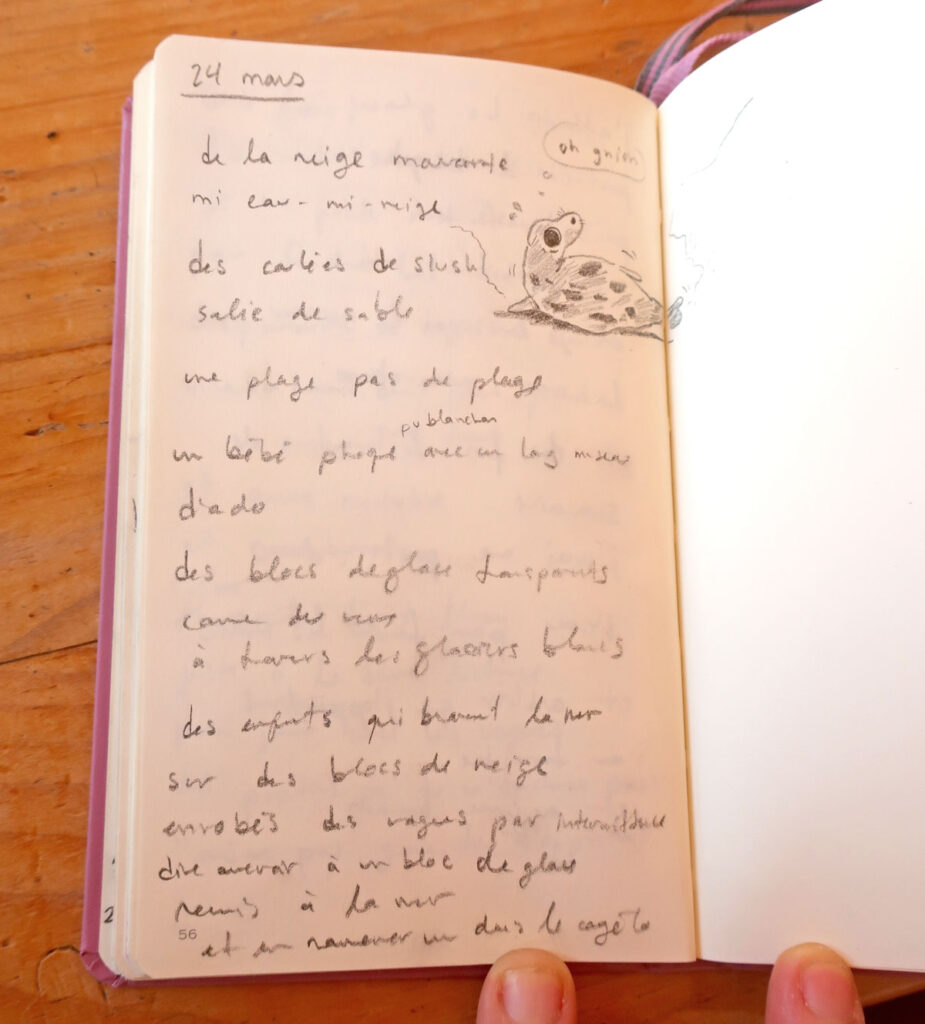 24 mars
oh gnion
de la neige
mi eau-mi-neige
des carlées de slush
salie de sable
une plage pas de plage
pu blanchon
un bébé phoque avec un long museau
d'ado
des blocs de glace transparents
comme des
à travers les glaciers blancs
des enfants qui bravent la mer
sur des blocs de neige
enrobés des vagues par intermittence
dire aurevoir à un bloc de glace
remis à la mer
56
et en ramener un dans le
2